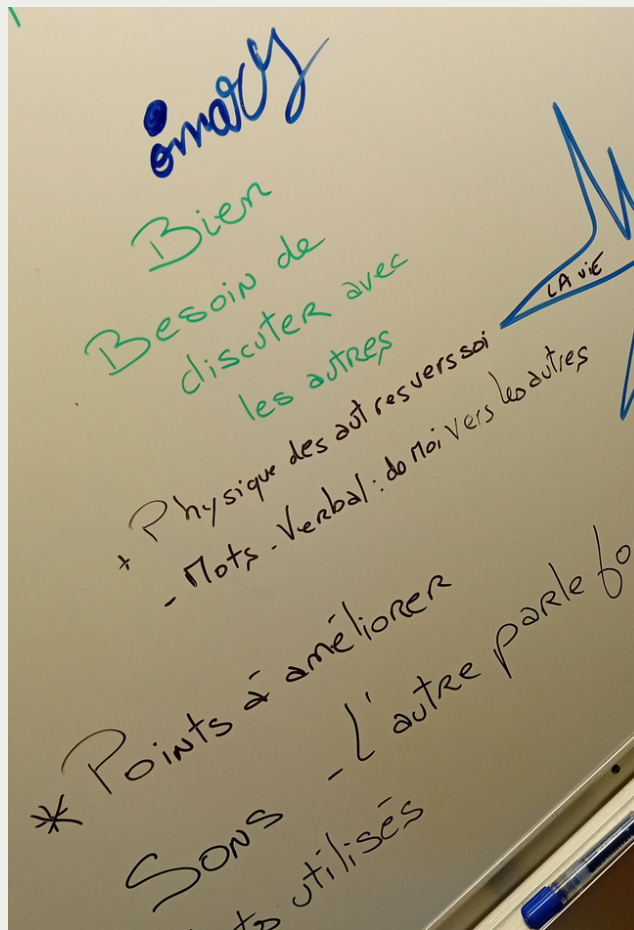 Bien
Besoin de
discuter avec
les autres
LA ViE
+ Physique des autres vers soi
- Mots - Verbal : de moi vers les autres
* Points à améliorer
Sons - L'autre parle fo
utilisés